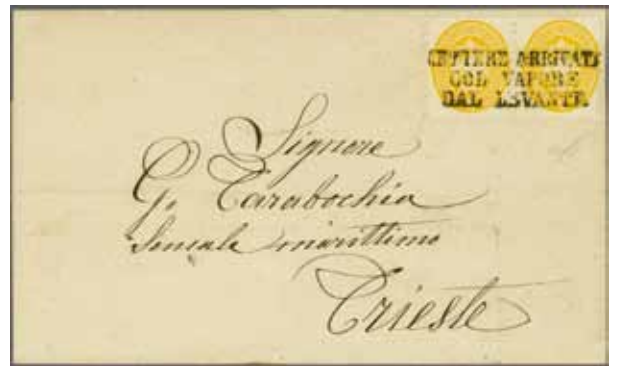 LETTERE ARRIVATE
COL VAPORE
DAL LEVANTE
Signore
G. Tarabochia
Sensale marittimo
Trieste